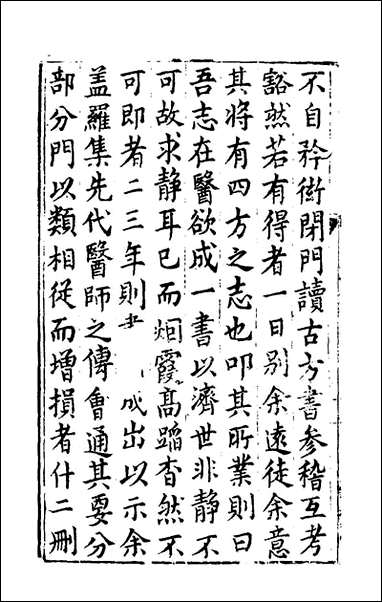 不自矜衒閉門讀古方書參稽互考
豁然若有得者一日別余遠徒余意
其將有四方之志也叩其所業則曰
吾志在醫欲成一書以濟世非静不
可故求静耳已而烟霞高蹈杳然不
可即者二三年則成出以示余
盖羅集先代醫師之傳會通其要分
部分門以類相從而增損者什二刪